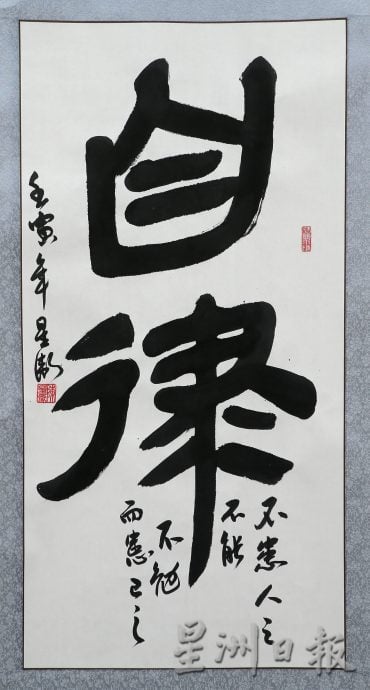 自律
不患人之
不能
而患己之
不勉
壬寅年星
星洲日報